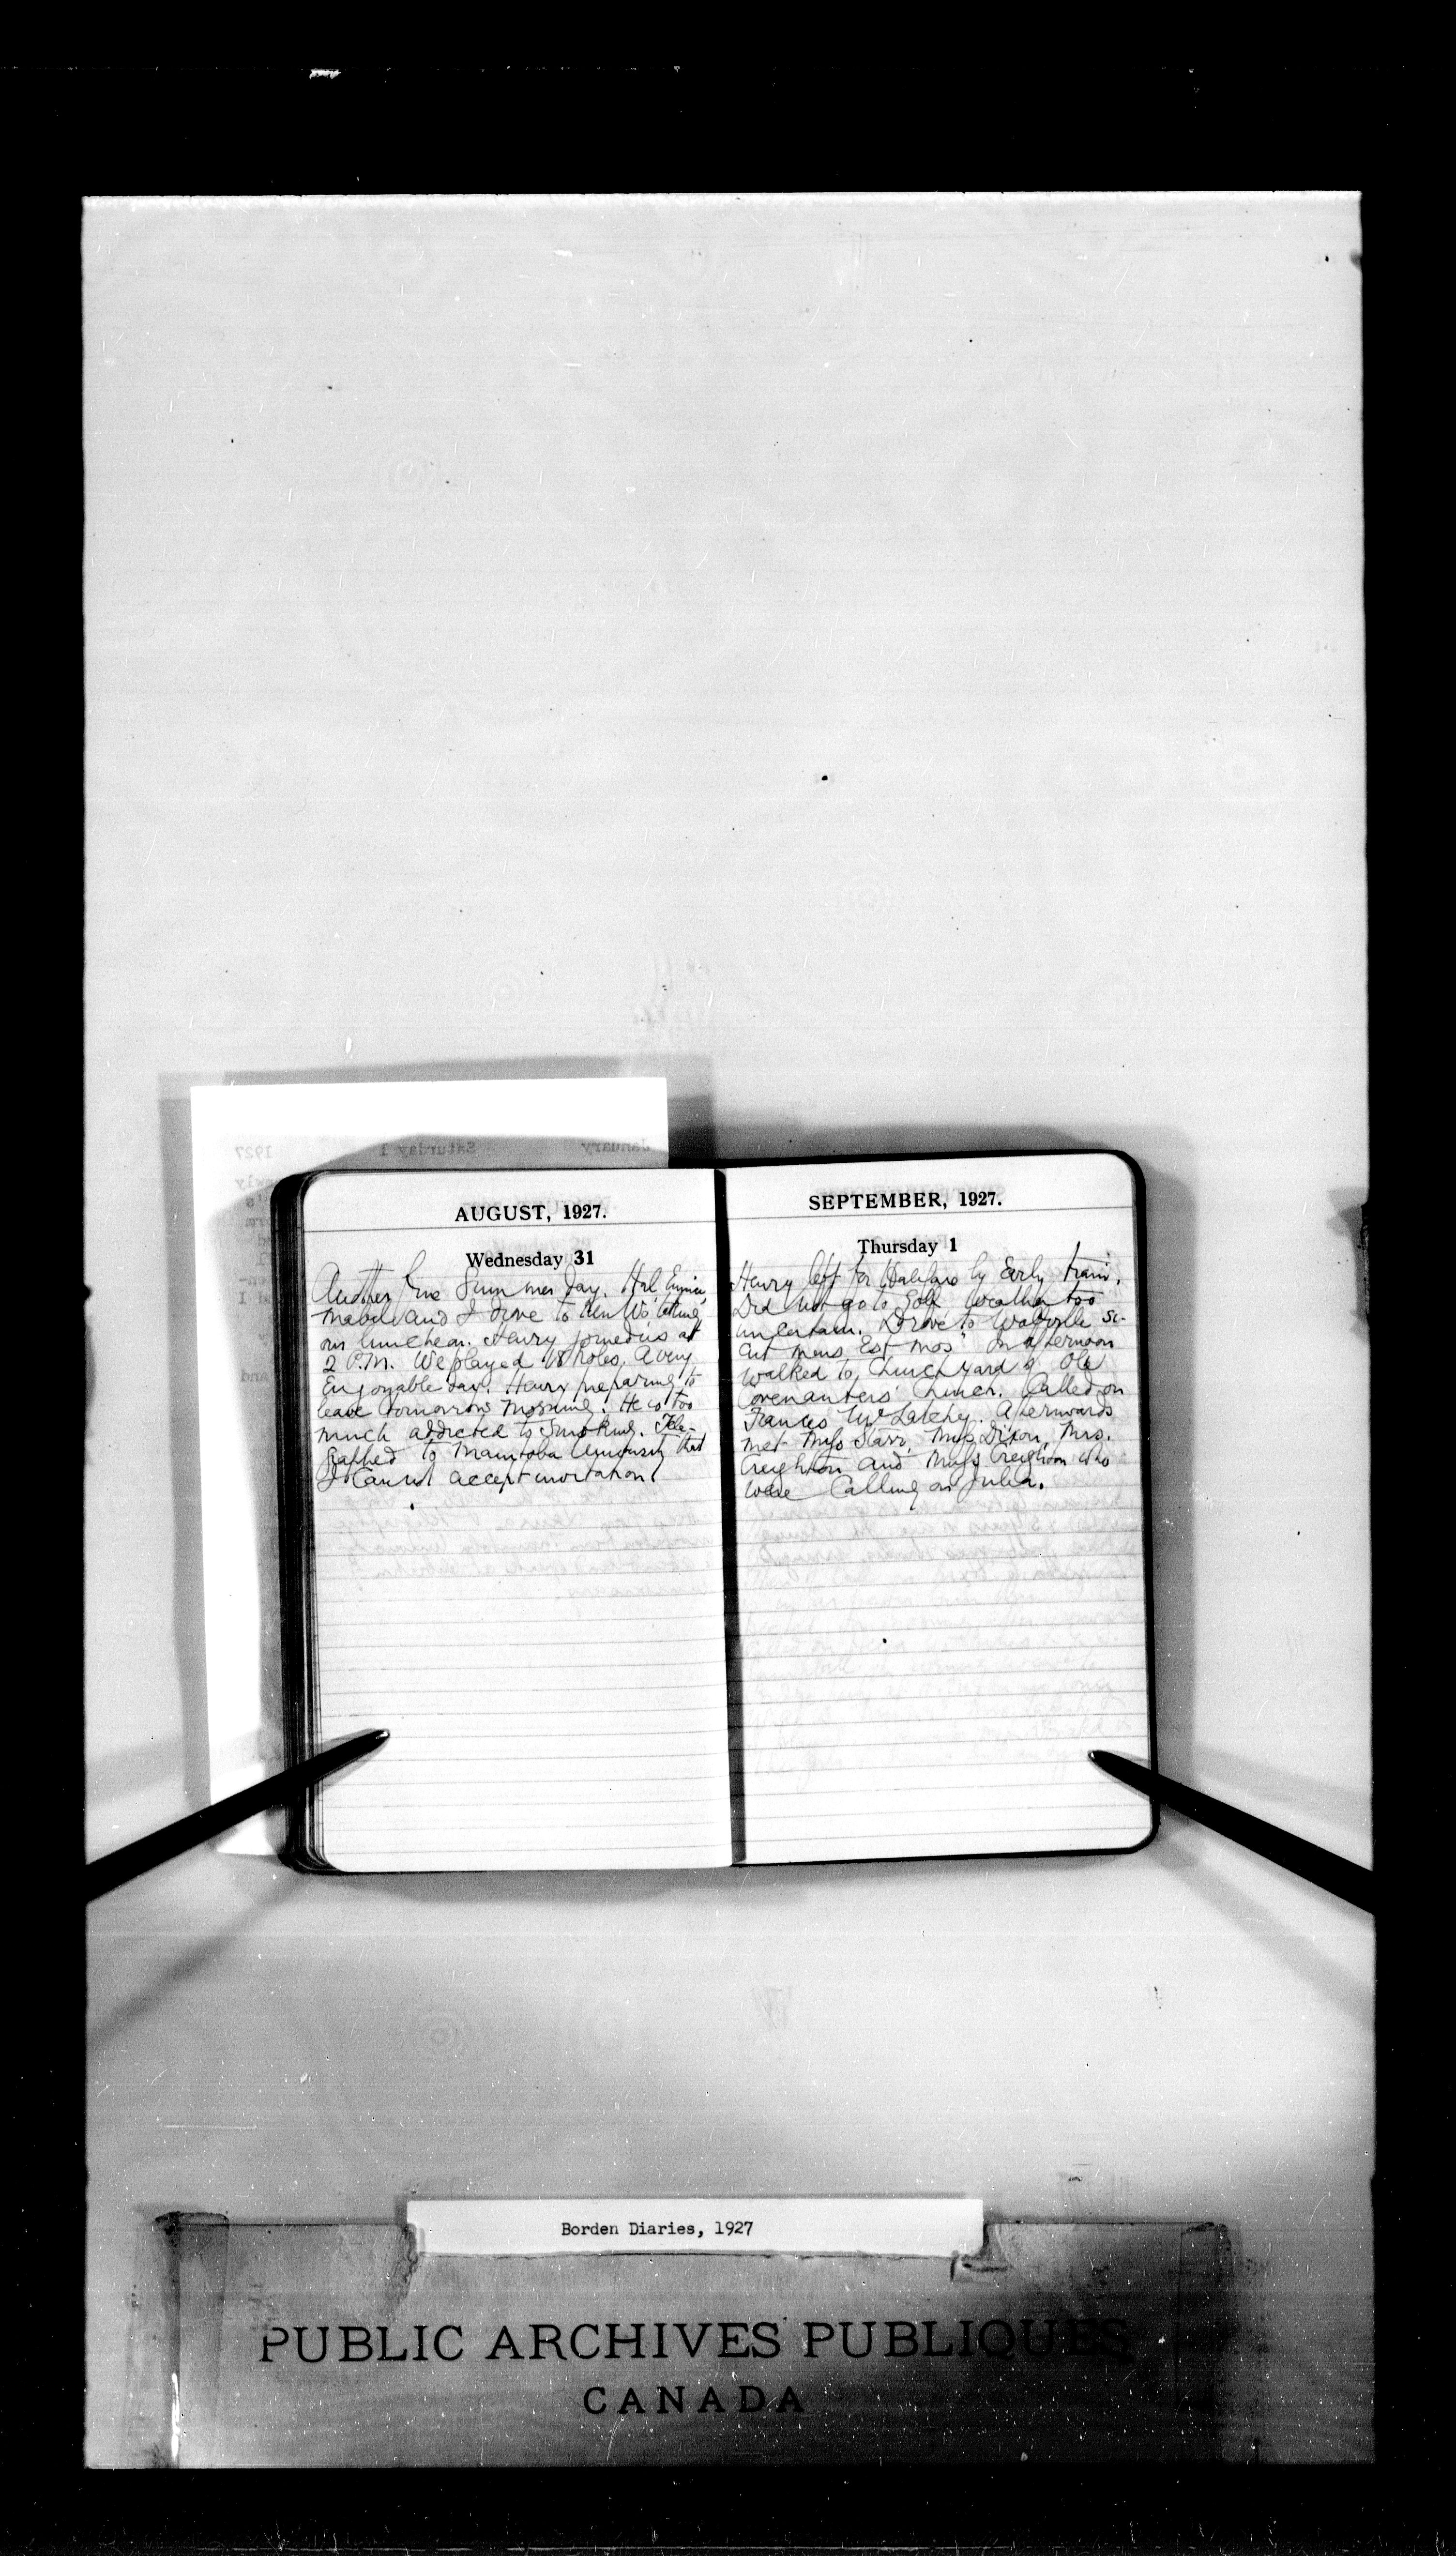 January Saturday 1 1927
AUGUST, 1927.
Wednesday 31
Another fine Summer day. Hal, Eunice,
Mabel and I drove to Ken Wo, taking
our luncheon. Henry joined us at
2 P.M. We played 18 holes. A very
Enjoyable day. Henry preparing to
leave tomorrow morning. He is too
much addicted to Smoking. Tele-
graphed to Manitoba University that
I cannot accept invitation.
SEPTEMBER, 1927.
Thursday 1
Henry left for Halifax by Early train.
Did not go to Golf weather too
uncertain. Drove to Wolfville si-
cut mens Est mos. In afternoon
walked to Church yard of Old
Covenanters' Church. Called on
Frances McLatchy. Afterwards
met Miss Starr, Miss Dixon, Mrs.
Creighton and Miss Creighton who
were Calling on Julia.
Borden Diaries, 1927
PUBLIC ARCHIVES PUBLIQUES
CANADA